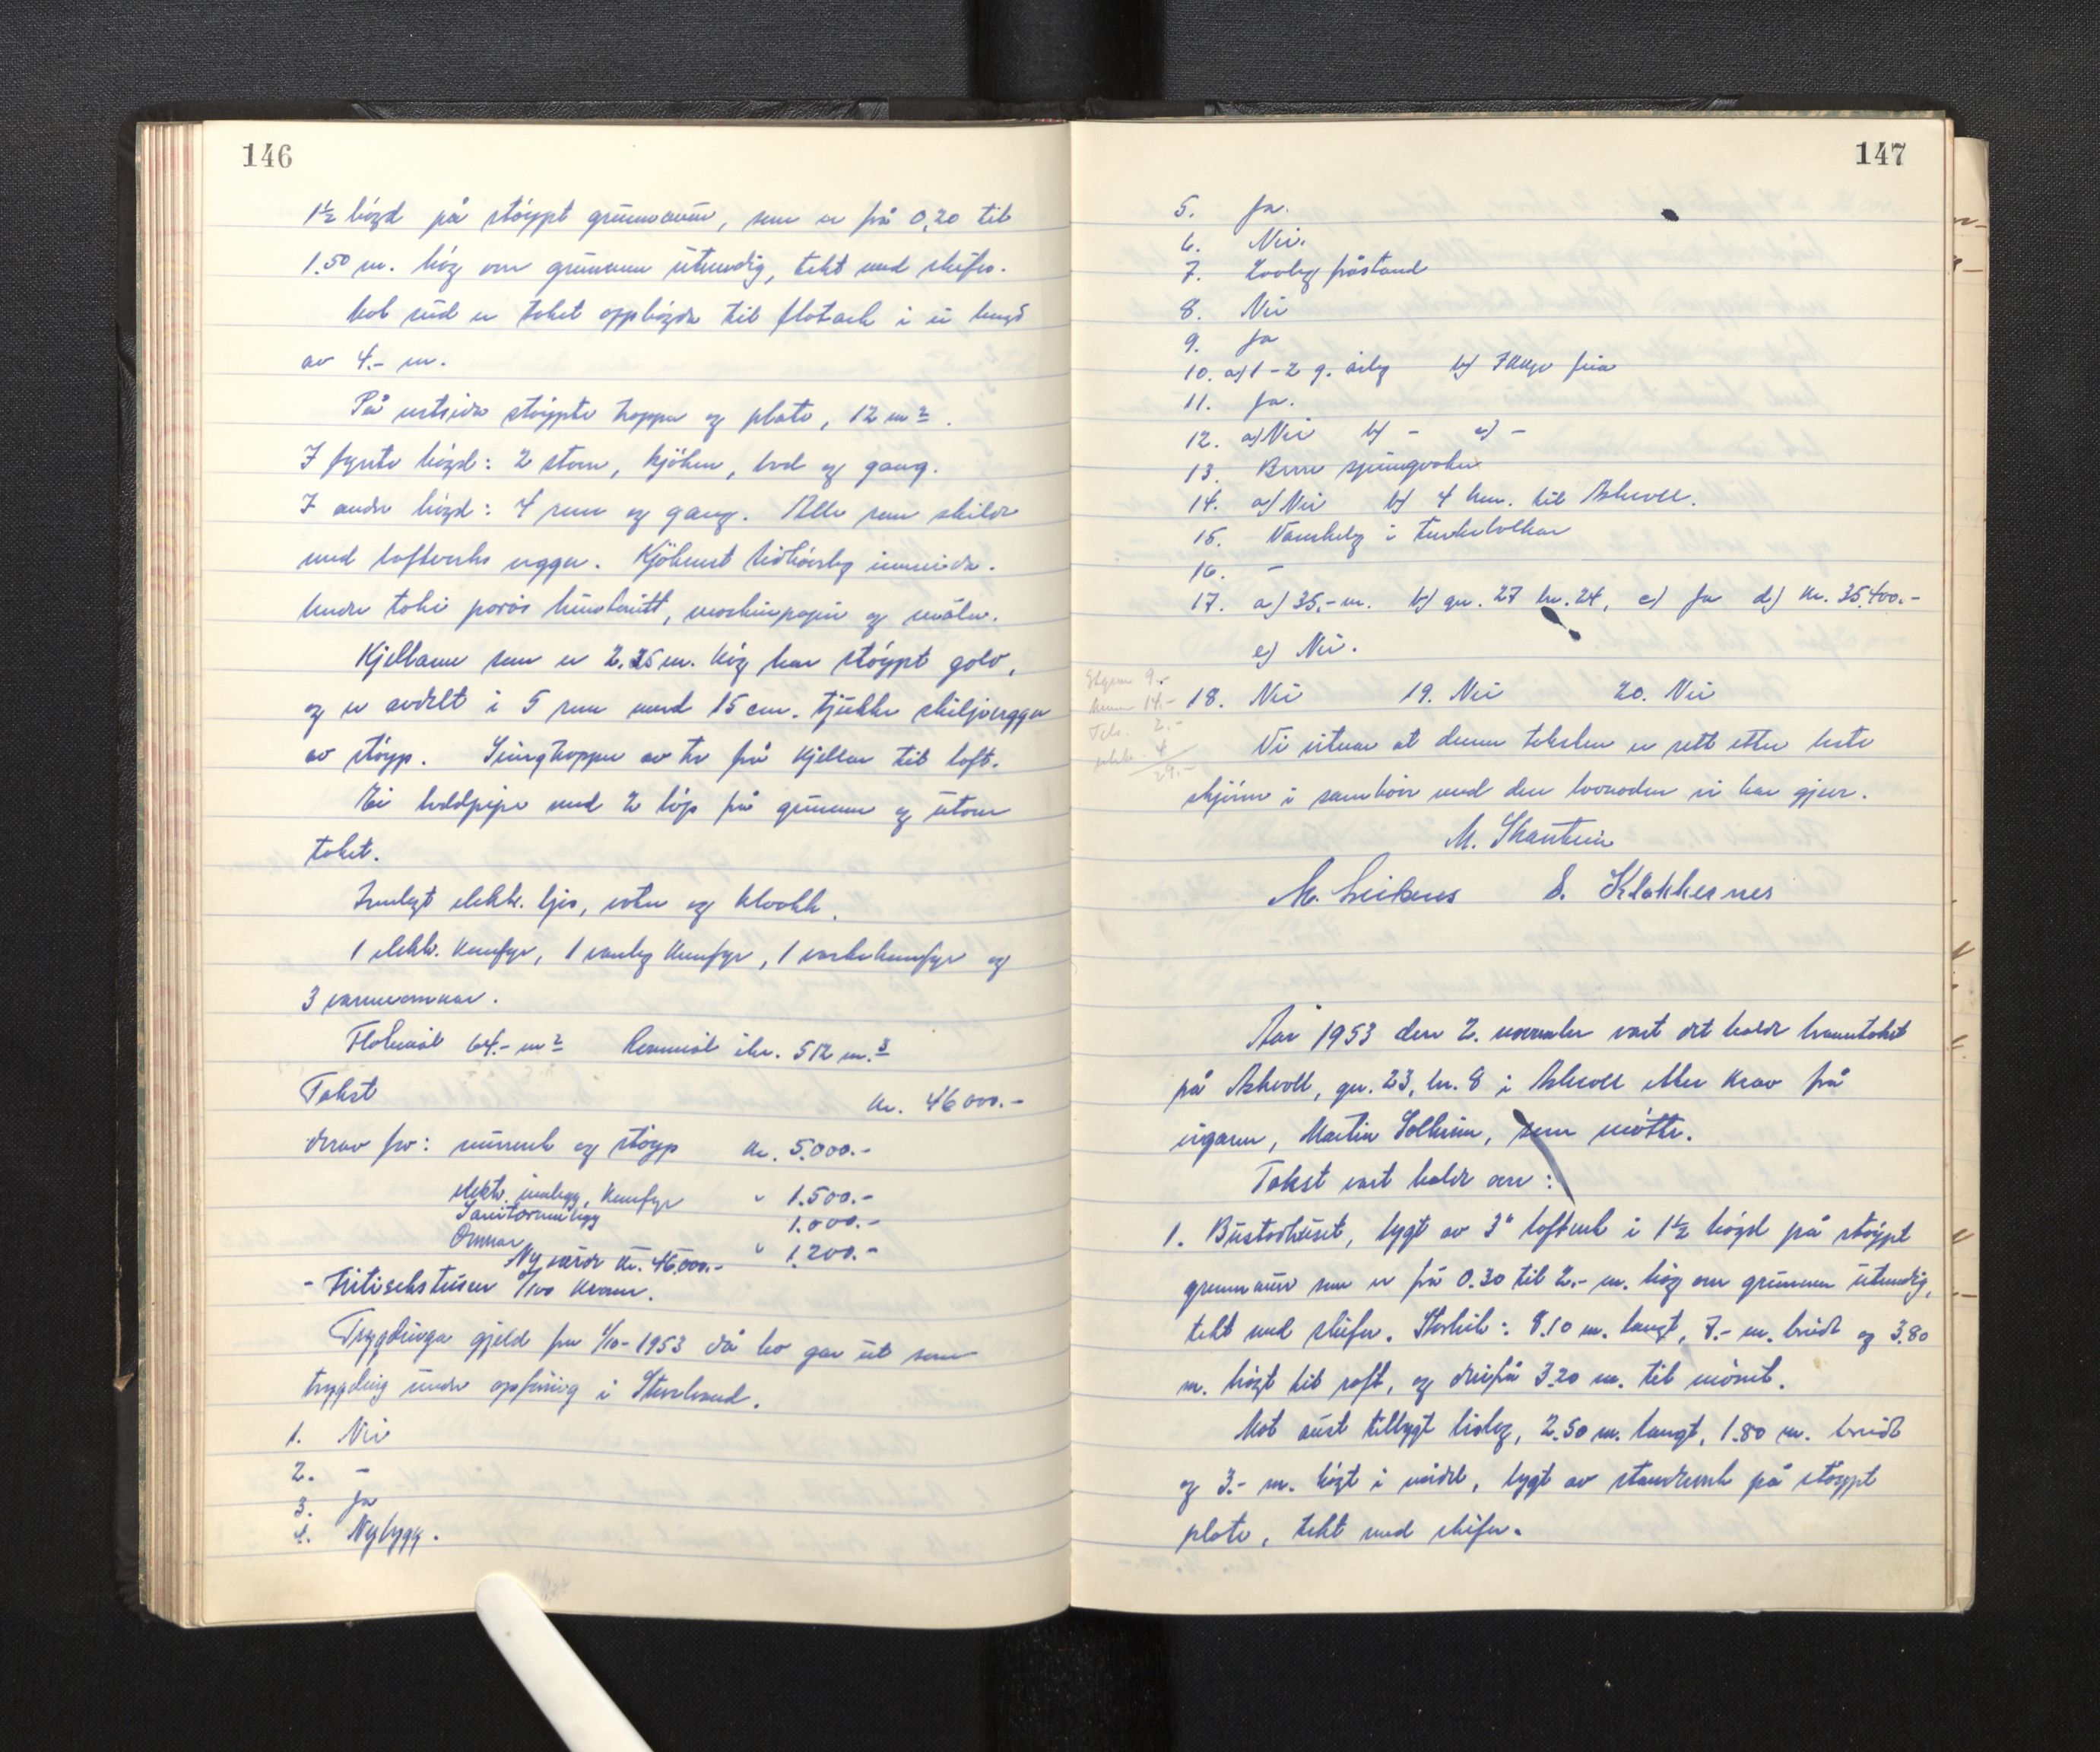 146
1½ högd på stöypt grunnmur, som er frå 0,20 til
1.50 m. hög over grunnen utvendig, tekt med skifer.
Mot sud er taket opphögde til flatark i ei lengd
av 4.- m.
På vestsida stöypte trappe og plate, 12 m².
I fyrste högd: 2 stover, kjöken, bad og gang.
I andre högd: 4 rom og gang. Alle rom skilde
med lofteverks vegger. Kjökenet tidhöveleg innreidde.
Under taki porös huntonitt, maskinpapir og måla.
Kjellaren som er 2.25 m. hög har stöypt golv,
og er avdelt i 5 rom med 15 cm. tjukke skiljevegger
av stöyp. Svingtrapper av tre frå kjellar til loft.
Ei kvildpipe med 2 löp frå grunnen og utover
taket.
Innlagt elektr. ljos, vatn og klovakk.
1 elektr. komfyr, 1 vanleg komfyr, 1 vaskekomfyr og
3 varmeomnar.
Flatemål 64.- m² Rommål ikr. 512 m.³
Takst kr. 46000.-
derav for: murverk og stöyp kr. 5.000.-
elektr. innlegg, komfyr " 1.500.-
Sanitærinnlegg 1.000.-
Omnar " 1.200.-
Ny verde kr. 46.000.-
- Fritidshsteusen º/100 kroner.
Trygdinga gjeld frå 1/10-1953 då ho gar ut som
trygding under oppföring i Storebrand.
1. Nei
2. -
3. Ja
4. Nybygg.
147
5. Ja.
6. Nei.
7. Lovleg fråstand
8. Nei
9. Ja
10. a) 1-2 g. årleg b) Ikkje feia
11. Ja.
12. a) Nei b) - c) -
13. Berre springvatn
14. a) Nei b) 4 km. til Askvoll.
15. Vanskeleg i turkebolkar
16. -
17. a) 35,- m. b) gn. 27 bn. 24, c) Ja d) kr. 35.400.-
e) Nei.
18. Nei 19. Nei 20. Nei
9.-
14.-
2.-
4
29.-
Vi vitnar at denne taksten er sett etter beste
skjönn i samhöve med den lovnaden vi har gjeve.
M. Skantsein
M. Leiknes S. Klakkernes
År 1953 den 2. november vart det halde branntakst
på Askvoll, gn. 23, bn. 8 i Askvoll etter krav frå
eigaren, Martin Solheim, som mötte.
Takst vart halde over:
1. Bustadhuset, bygt av 3" loftverk i 1½ högd på stöypt
grunnmur som er frå 0.30 til 2.- m. hög over grunnen utvendig,
tekt med skifer. Storleik: 8.10 m. langt, 7.- m. breidt og 3.80
m. högt til raft, og derifrå 3.20 m. til mönet.
Mot aust tilbygt bislag, 2.50 m. langt, 1.80 m. breidt
og 3.- m. högt i midel, bygt av standverk på stöypt
plate, tekt med skifer.